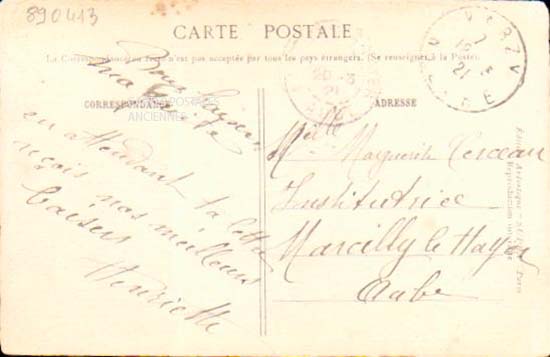 890413
CARTE POSTALE
La Correspondance au recto n'est pas acceptée par tous les pays étrangers. (Se renseigner à la Poste).
CORRESPONDANCE
ADRESSE
CARTES POSTALES
ANCIENNES
VARZY
20-3
21
Bons baisers
ma
en attendant ta lettre
reçois nos meilleurs
baisers
Henriette
Melle
Marguerite Cerceau
Institutrice
Marcilly le Hayer
Aube